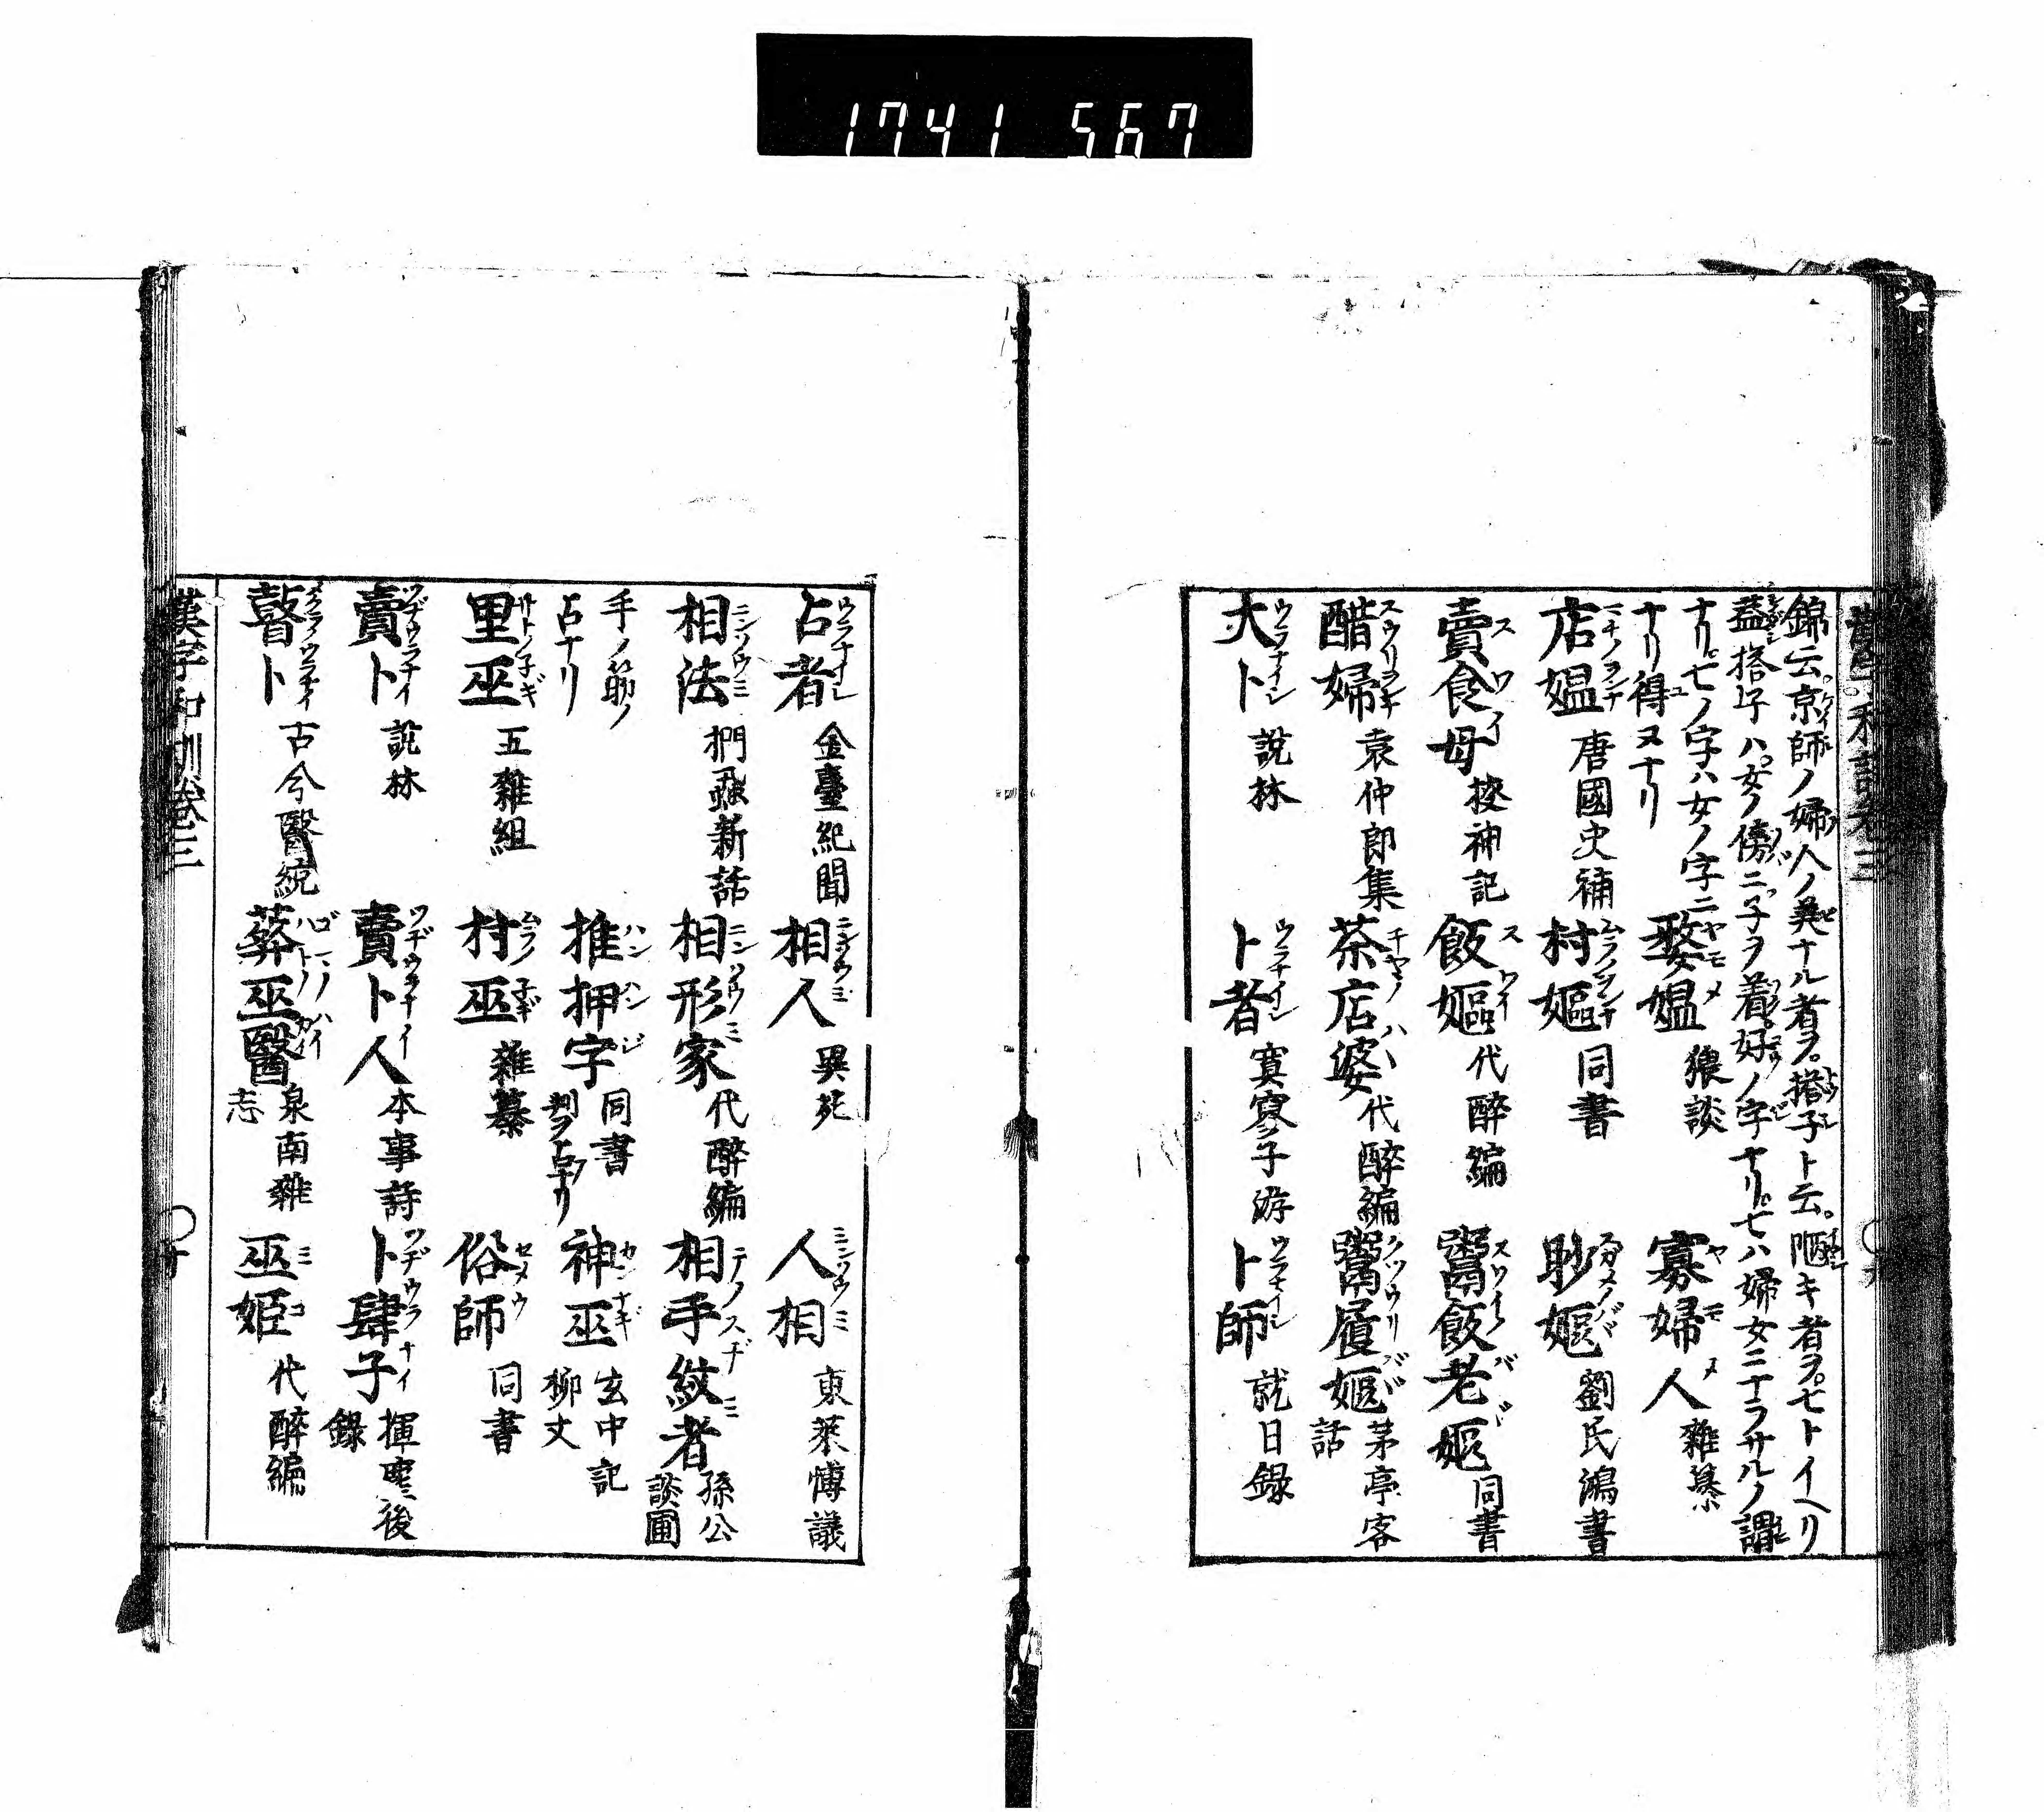 1741 567
錦云京師ノ婦人ノ美ナル者ヲ搭子ト云陋キ者ヲ七トイヘリ
蓋搭子ハ女ノ傍ニ子ヲ着好ノ字ナリ七ハ婦女ニナラサルノ謂
ナリ七ノ字ハ女ノ字ニ
ナリ得ヌナリ
婺媼 猥談
寡婦人 雜纂
店媼 唐國史補
村嫗 同書
眇嫗 劉氏鴻書
賣食母 搜神記
飯嫗 代醉編
鬻飯老嫗 同書
醋婦 袁仲郎集
茶店婆 代醉編
鬻履嫗 茅亭客話
大卜 說林
卜者 寞寥子游
卜師 就日錄
占者 金臺紀聞
相人 異苑
人相 東萊博議
相法 捫虱新話
相形家 代醉編
相手紋者 孫公談圃
手ノ筋ノ
占ナリ
推押字 同書
判ヲ占ナリ
神巫 玄中記
柳丈
里巫 五雜組
村巫 雜纂
俗師 同書
賣卜 說林
賣卜人 本事詩
卜肆子 揮塵後錄
瞽卜 古今醫統
蟒巫醫 泉南雜志
巫姬 代醉編
漢字和訓卷三